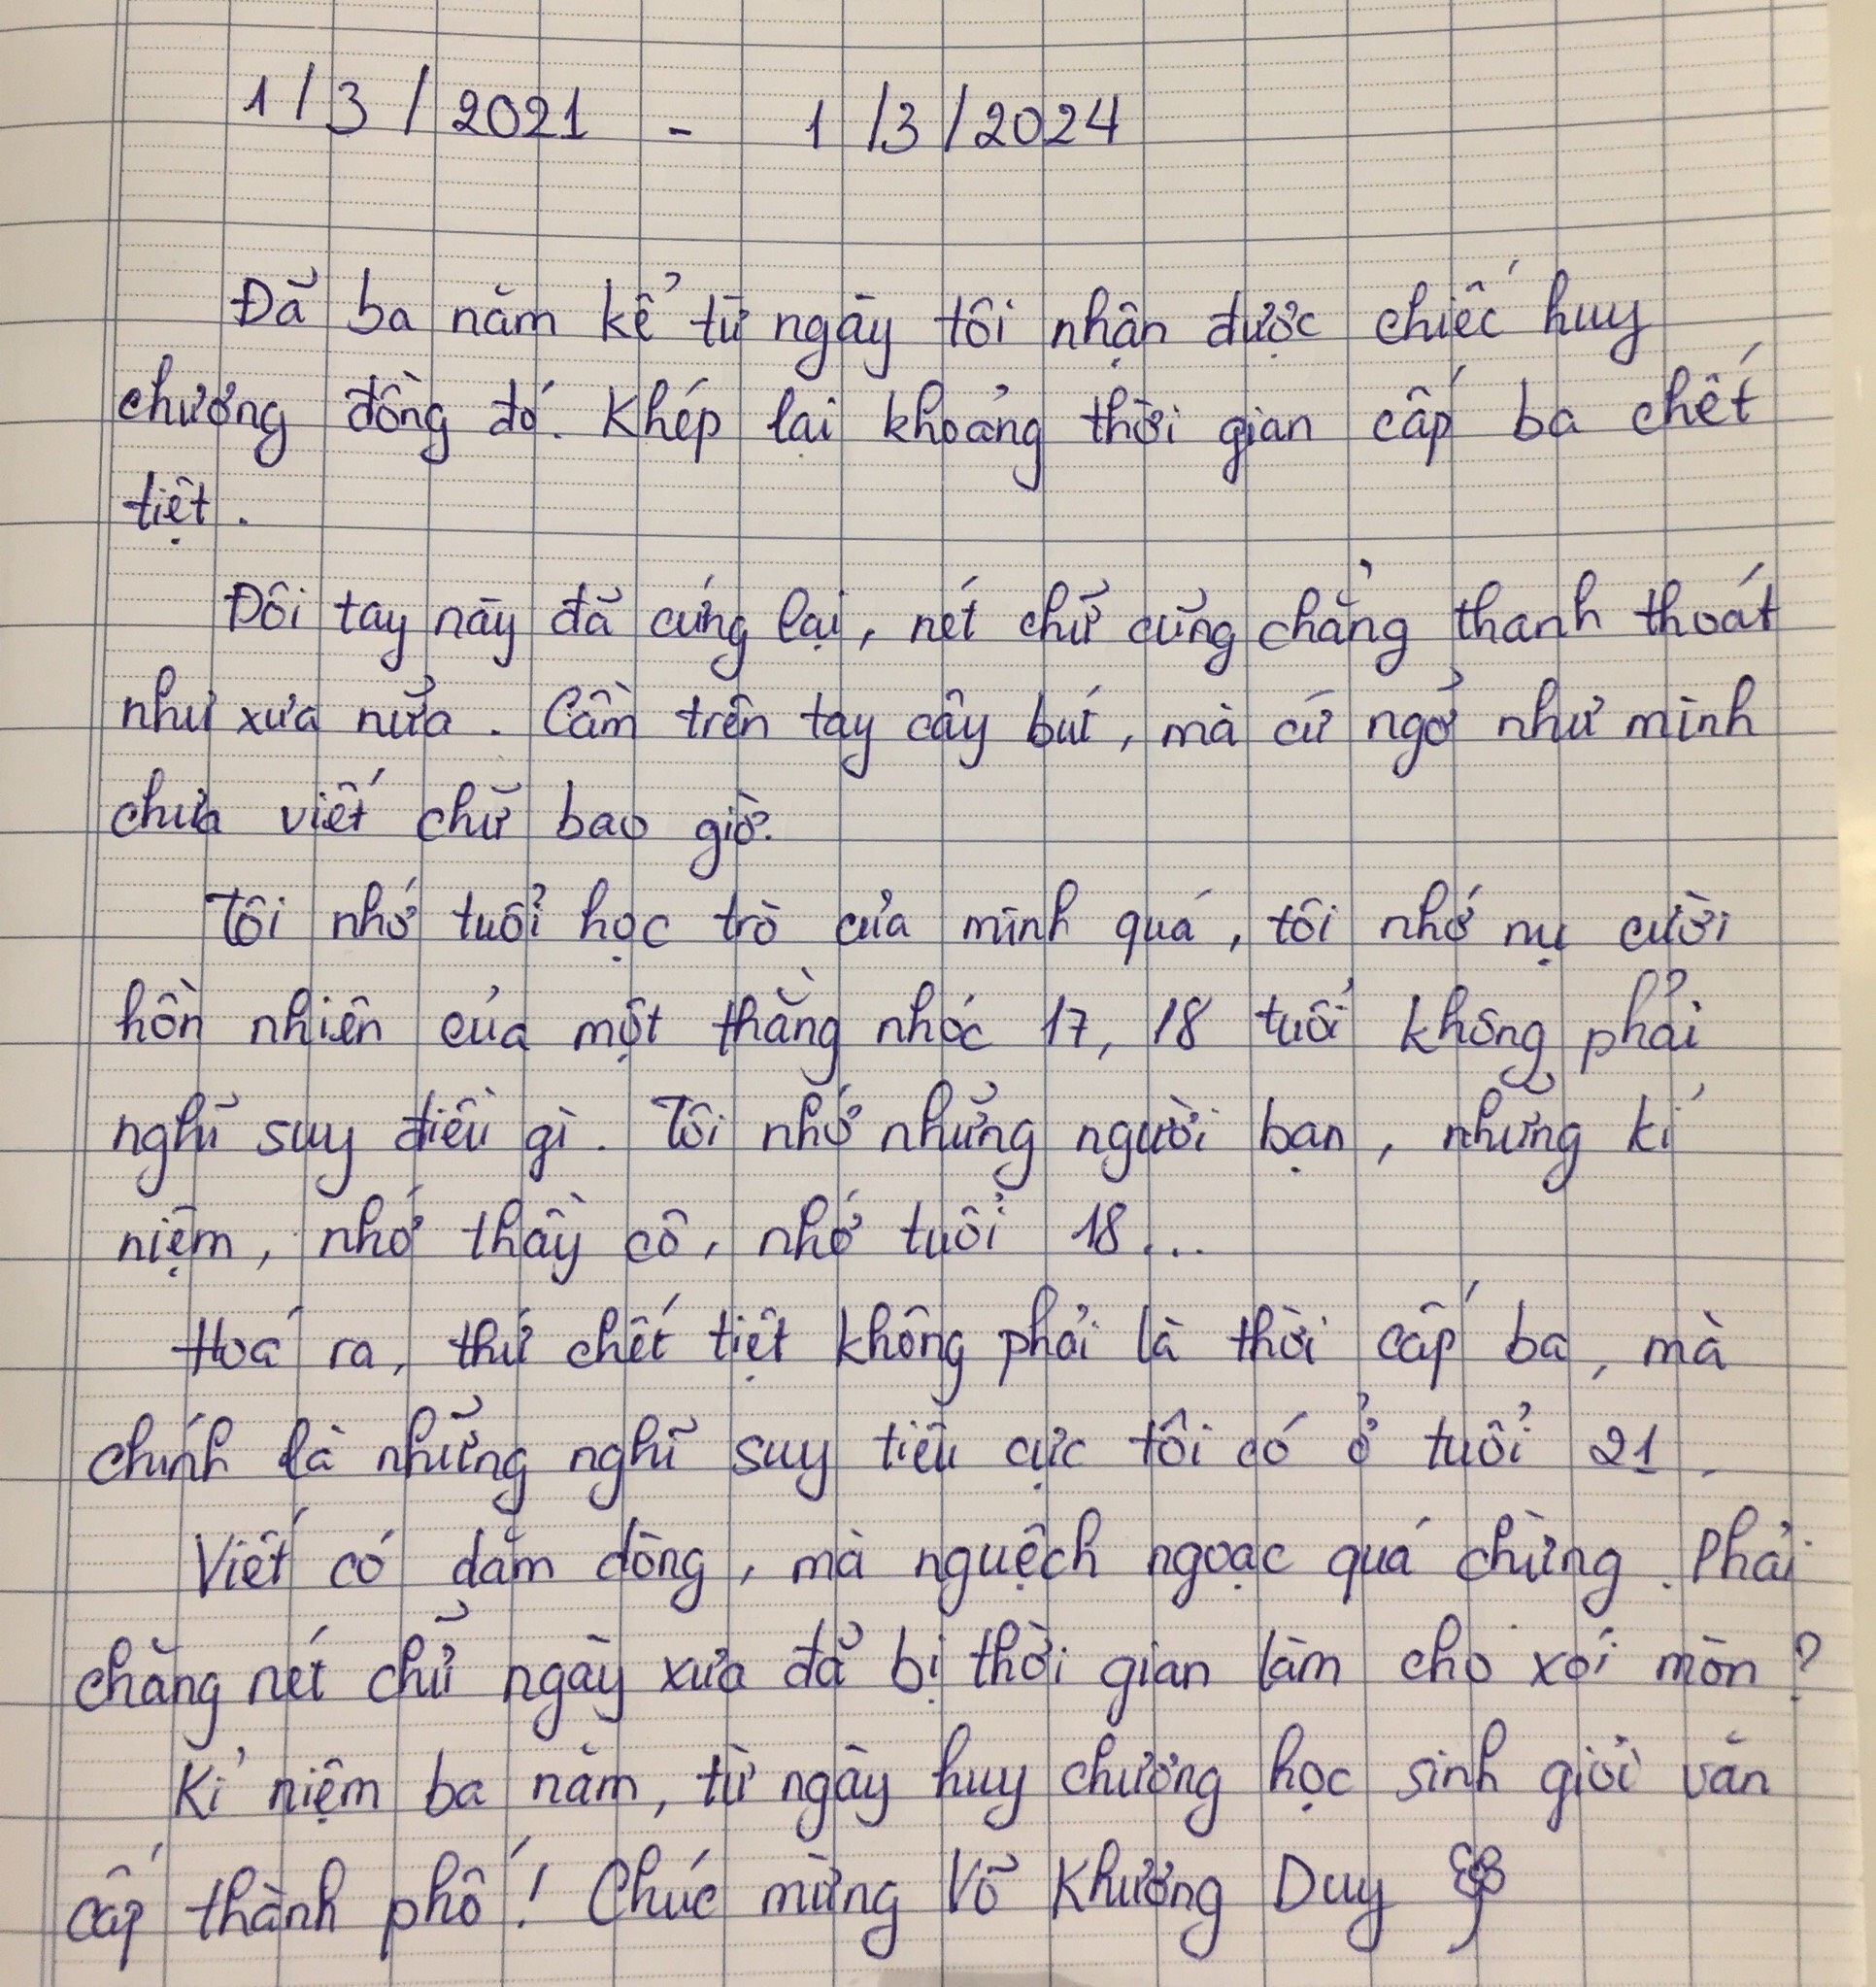 1/3/2021 - 1/3/2024
Đã ba năm kể từ ngày tôi nhận được chiếc huy
chương đồng đó. Khép lại khoảng thời gian cấp ba chết
tiệt.
Đôi tay này đã cứng lại, nét chữ cũng chẳng thanh thoát
như xưa nữa. Cầm trên tay cây bút, mà cứ ngỡ như mình
chưa viết chữ bao giờ.
Tôi nhớ tuổi học trò của mình quá, tôi nhớ nụ cười
hồn nhiên của một thằng nhóc 17, 18 tuổi không phải
nghĩ suy điều gì. Tôi nhớ những người bạn, những kỉ
niệm, nhớ thầy cô, nhớ tuổi 18...
Hoá ra, thứ chết tiệt không phải là thời cấp ba, mà
chính là những nghĩ suy tiêu cực tôi có ở tuổi 21.
Viết có dăm dòng, mà nguệch ngoạc quá chừng. Phải
chăng nét chữ ngày xưa đã bị thời gian làm cho xói mòn?
Kỉ niệm ba năm, từ ngày huy chương học sinh giỏi văn
cấp thành phố! Chúc mừng Võ Khương Duy